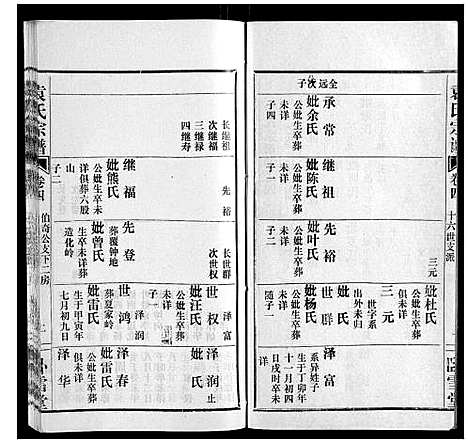 袁氏宗谱
卷四
十六世支派
卧雪堂
全远次子
承常
妣余氏
公妣生卒葬
未详
子四
继祖
妣陈氏
公妣生卒葬
未详
先裕
妣叶氏
公妣生卒葬
未详
三元
妣杜氏
公妣生卒葬
俱未详
世字系
出外未归
妣氏
世群
妣杨氏
公妣生卒葬
随子
泽富
系异姓子
生于丁卯年
十一月初四
日戌时卒未
详
长继祖
次继福
三继禄
四继寿
继福
妣熊氏
公妣生卒未
详俱葬六股
山
子二
先裕
先登
妣曾氏
葬覆钟地
生卒未详葬
造化岭
子二
长世群
次世权
世权
妣汪氏
公妣生卒葬
未详
泽富
世鸿
妣雷氏
葬夏家岭
生于甲寅年
七月初九日
泽润
泽润 止
妣氏
泽春
妣雷氏
公妣生卒葬
俱未详
泽华
袁氏宗谱
卷四
伯奇公支下二房
卧雪堂